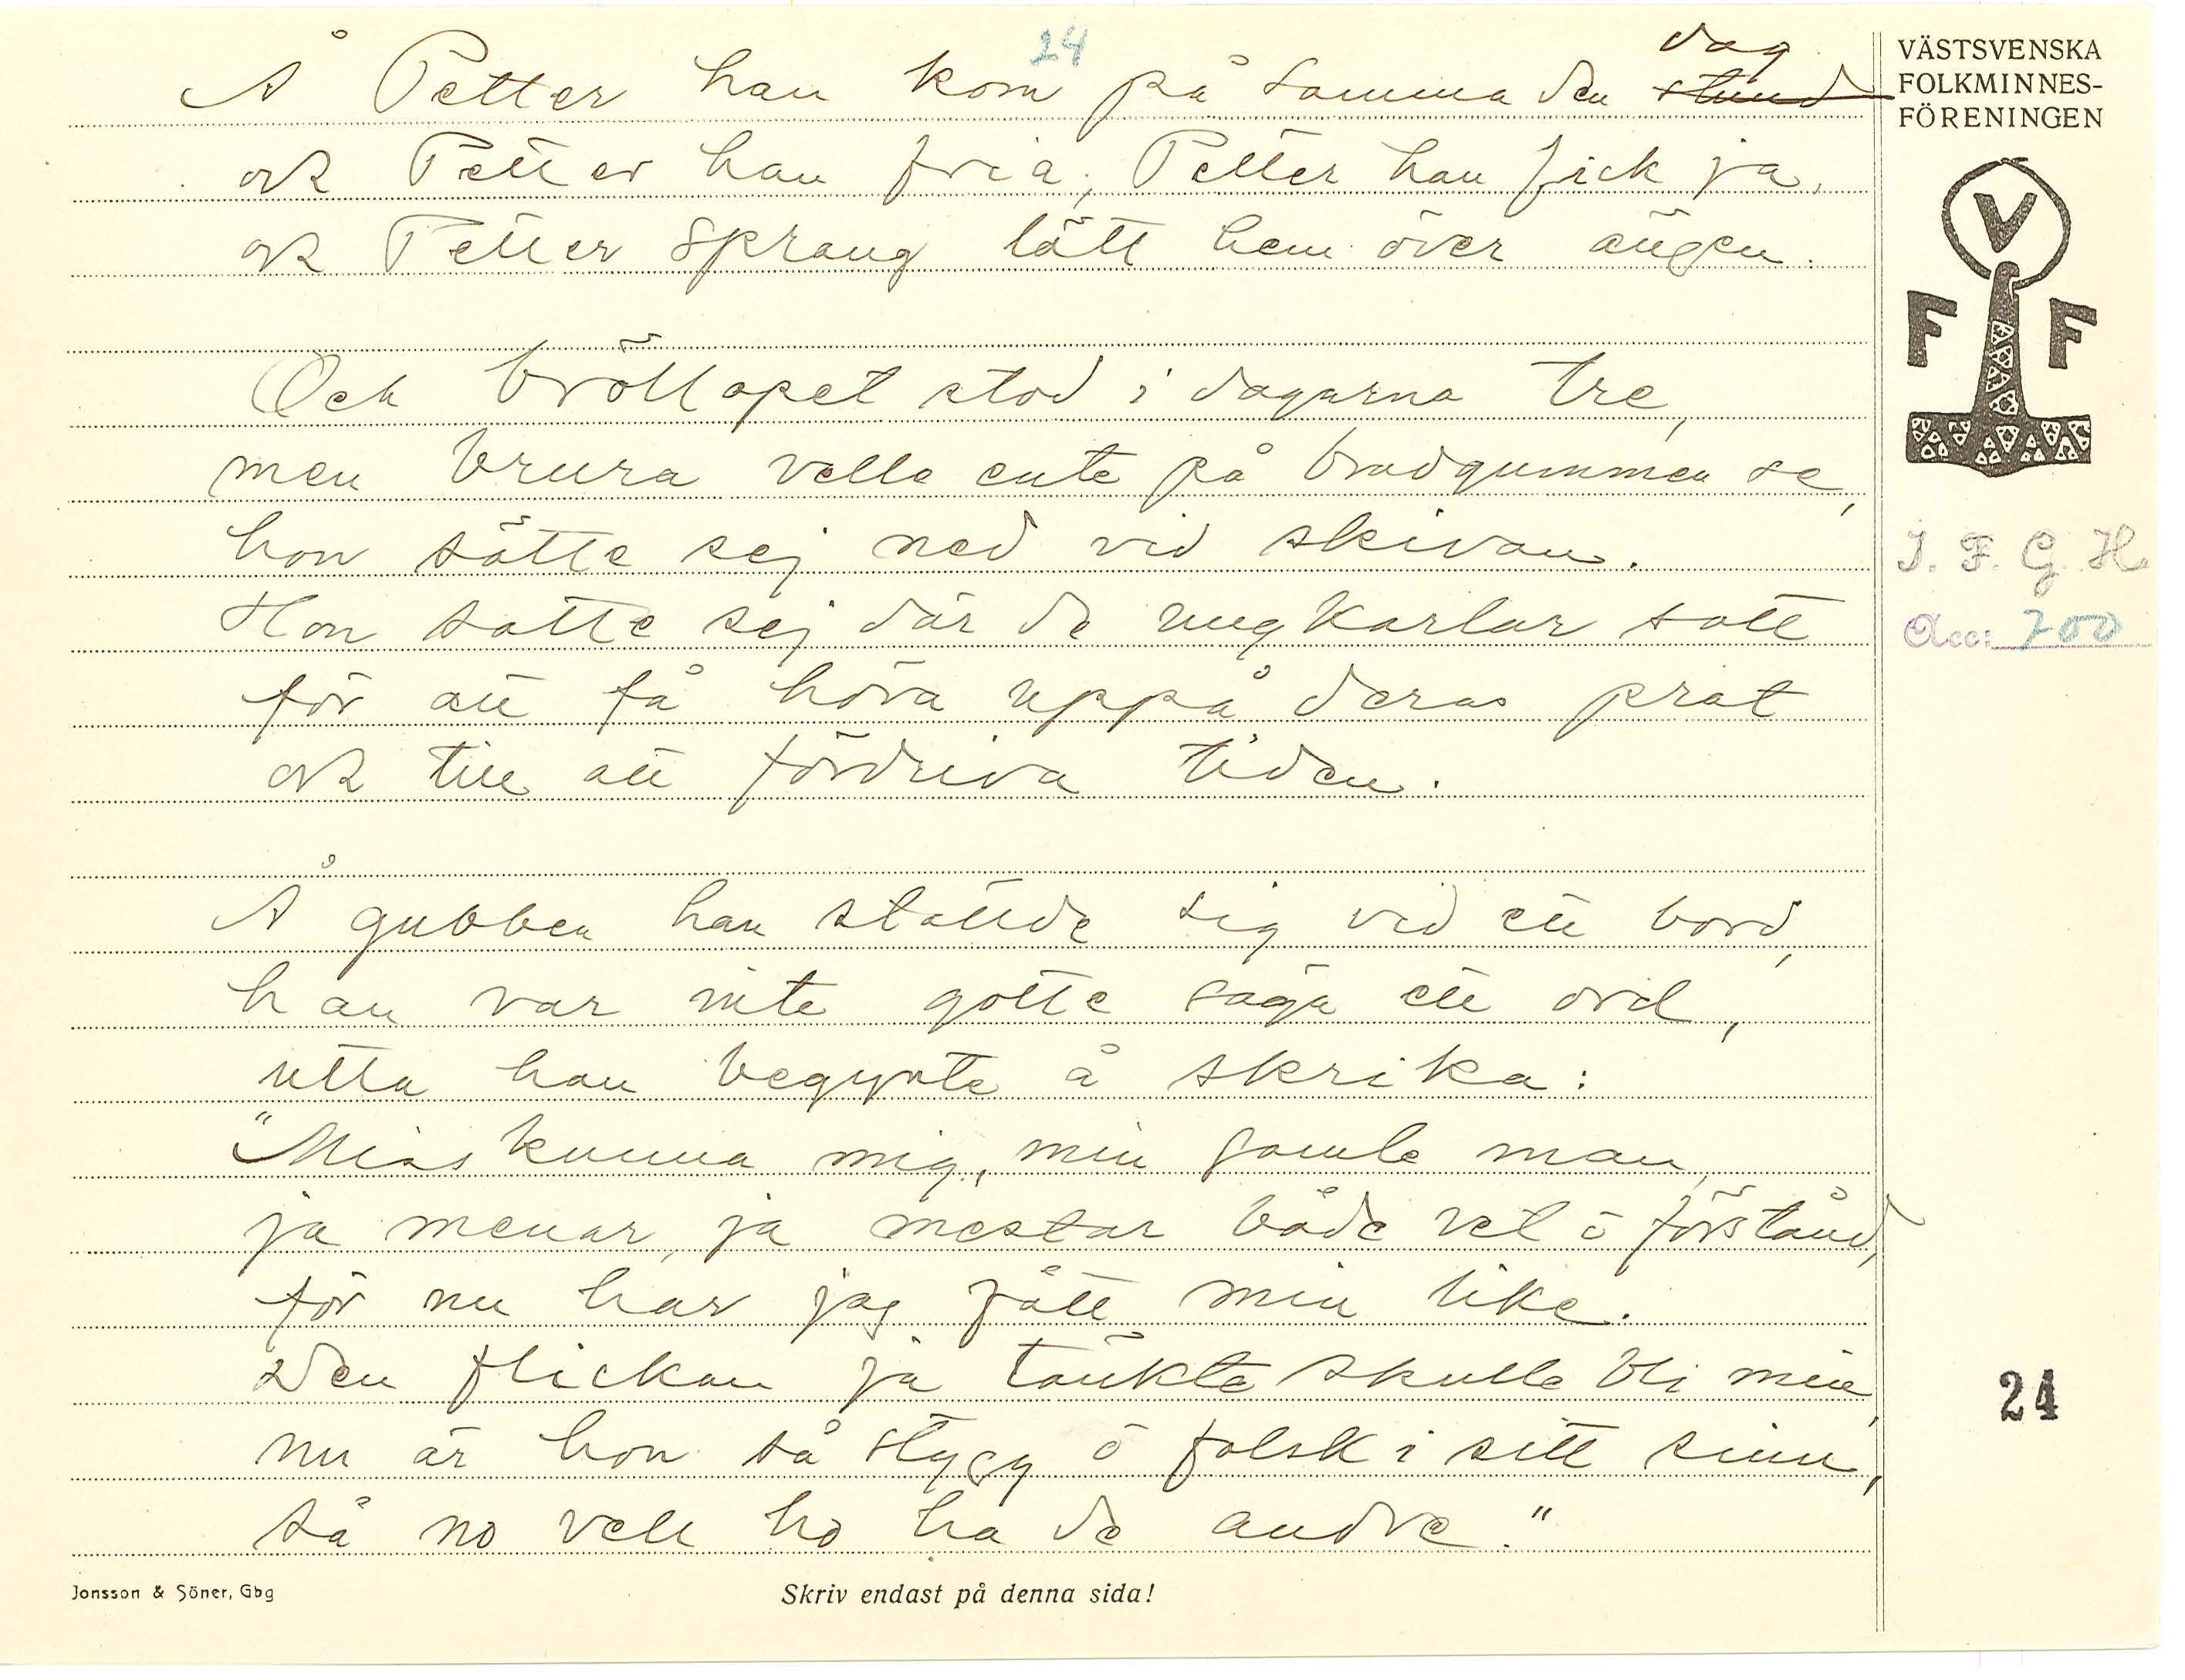 24
Å Petter han kom på samma den stund dag
ock Petter han fria, Petter han fick ja,
ock Petter sprang lätt hem över ängen.
Och bröllopet stod i dagarna tre,
men brura velle ente på brudgummen se,
hon sätte sej ned vid skivan.
Hon satte sej där de ungkarlar satt
för att få höra uppå deras prat
ock till att fördriva tiden.
Å gubben han ställde sig vid ett bord,
han var inte gotte säga ett ord,
utta han begynte å skrika:
"Misskunna mig, min gamle man,
ja menar, ja mestar både vet ö förstånd,
för nu har jag fått min like.
Den flickan ja tänkte skulle bli min,
nu är hon så stygg ö falsk i sitt sinn,
så no vell ho ha de andre."
VÄSTSVENSKA
FOLKMINNES-
FÖRENINGEN
V
F F
I. F. G. H.
Acc: 700
24
Jonsson & Söner, Gbg
Skriv endast på denna sida!